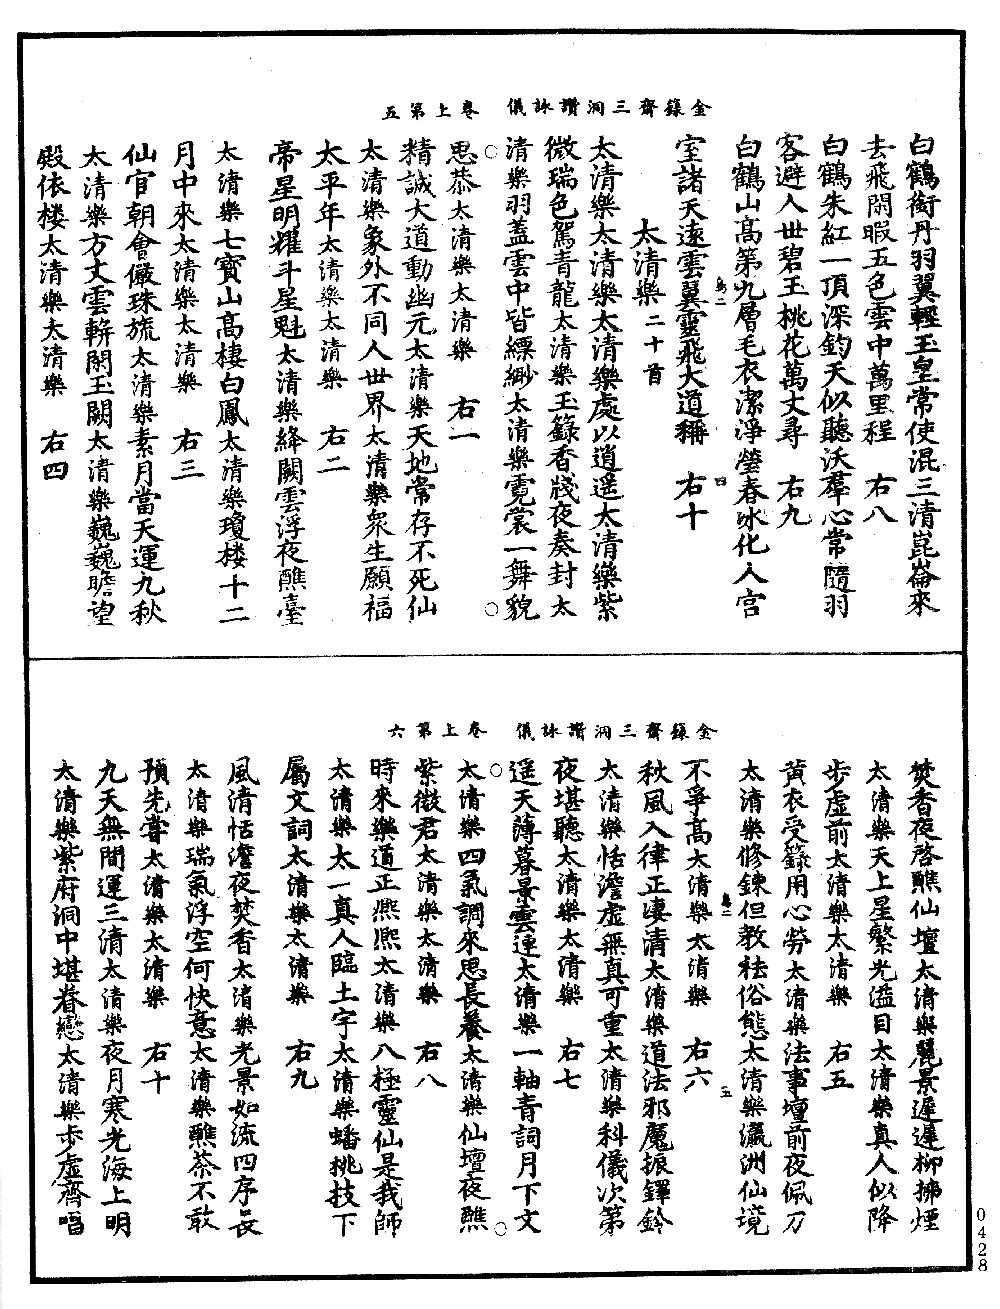 金籙齋三洞讚詠儀　卷上第五
白鶴銜丹羽翼輕玉皇常使混三清崑崙來
去飛閑暇五色雲中萬里程　右八
白鶴朱紅一頂深鈞天似聽沃羣心常隨羽
客避人世碧玉桃花萬丈尋　右九
白鶴山高第九層毛衣潔淨瑩春冰化人宮
室諸天遠雲翼靈飛大道稱　右十
太清樂二十首
太清樂太清樂太清樂處以逍遥太清樂紫
微瑞色駕青龍太清樂玉籙香牋夜奏封太
清樂羽蓋雲中皆縹緲太清樂霓裳一舞貌
思恭太清樂太清樂　右一
精誠大道動幽元太清樂天地常存不死仙
太清樂象外不同人世界太清樂眾生願福
太平年太清樂太清樂　右二
帝星明耀斗星魁太清樂絳闕雲浮夜醮臺
太清樂七寶山高棲白鳳太清樂瓊樓十二
月中來太清樂太清樂　右三
仙官朝會儼珠旒太清樂素月當天運九秋
太清樂方丈雲軿閑玉闕太清樂巍巍瞻望
殿依樓太清樂太清樂　右四
金籙齋三洞讚詠儀　卷上第六
焚香夜啓醮仙壇太清樂麗景遲遲柳拂煙
太清樂天上星繁光溢目太清樂真人似降
步虛前太清樂太清樂　右五
黃衣受籙用心勞太清樂法事壇前夜佩刀
太清樂修鍊但教祛俗態太清樂瀛洲仙境
不爭高太清樂太清樂　右六
秋風入律正淒清太清樂道法邪魔振鐸鈴
太清樂恬澹虛無真可重太清樂科儀次第
夜堪聽太清樂太清樂　右七
遥天薄暮景雲連太清樂一軸青詞月下文
太清樂四氣調來思長養太清樂仙壇夜醮
紫微君太清樂太清樂　右八
時來樂道正熙熙太清樂八極靈仙是我師
太清樂太一真人臨土宇太清樂蟠桃技下
屬文詞太清樂太清樂　右九
風清恬澹夜焚香太清樂光景如流四序長
太清樂瑞氣浮空何快意太清樂醮茶不敢
預先嘗太清樂太清樂　右十
九天無間運三清太清樂夜月寒光海上明
太清樂紫府洞中堪眷戀太清樂步虛齊唱
0428